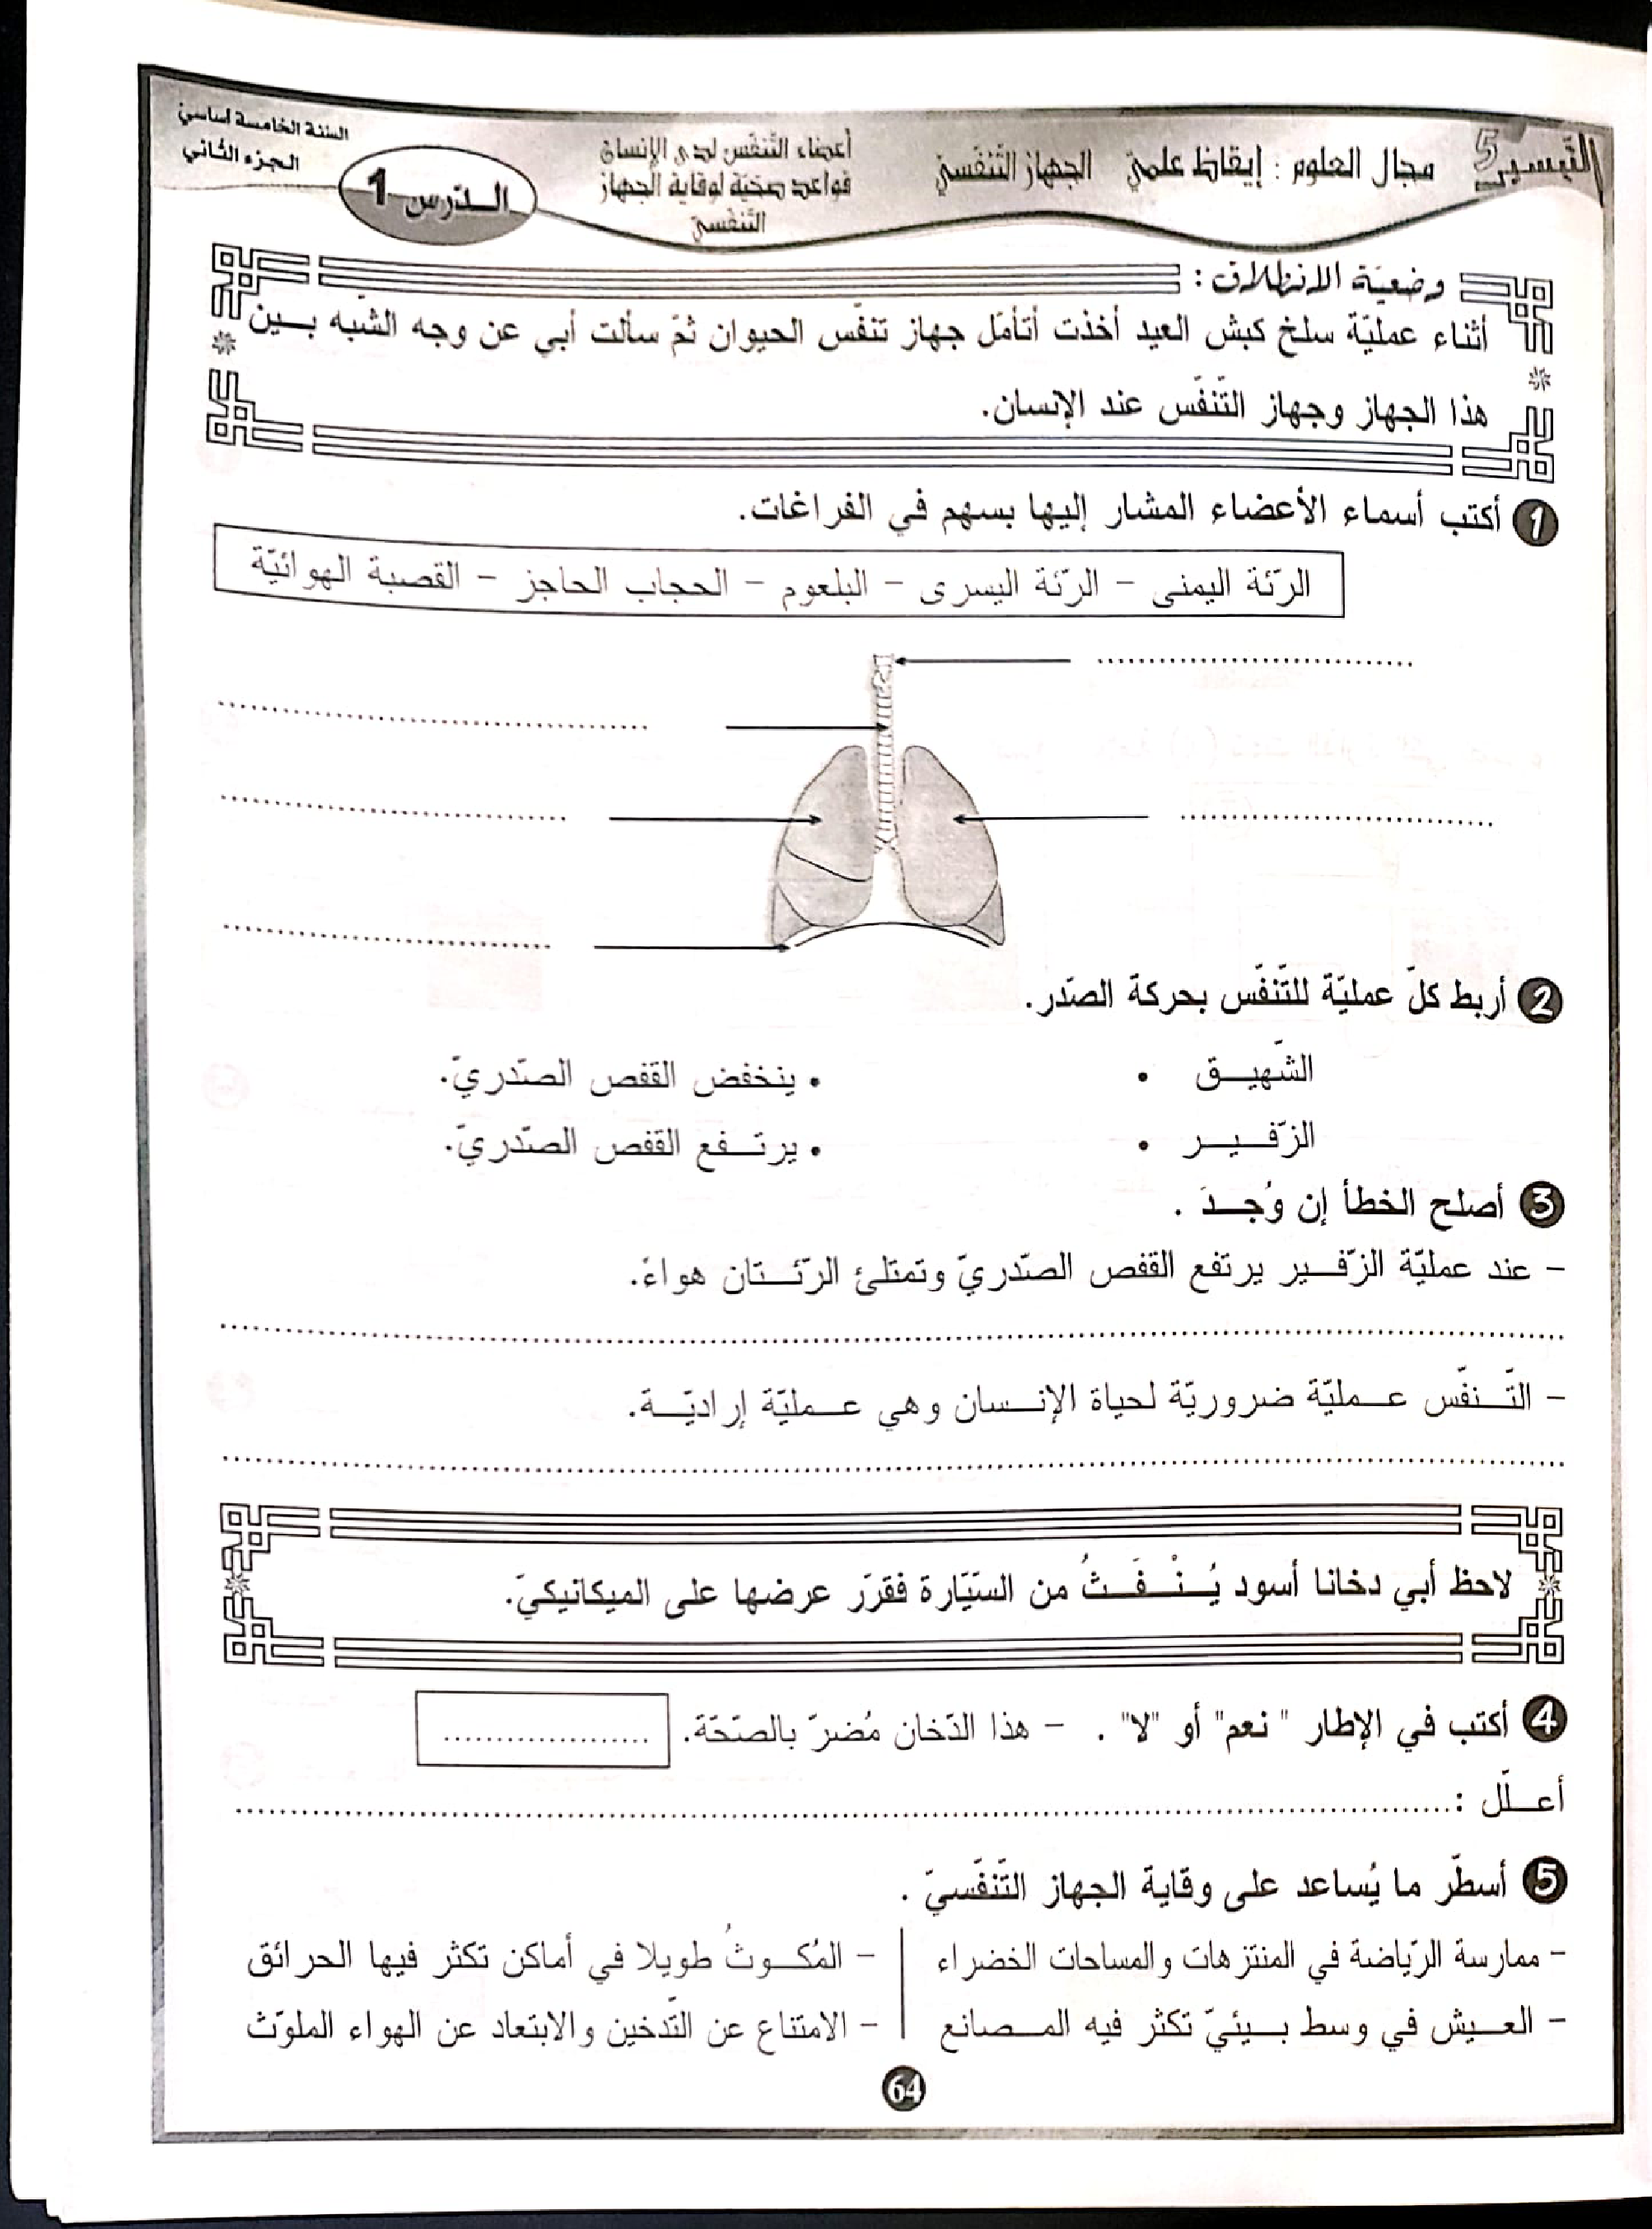 التيسير 5
مجال العلوم : إيقاظ علمي
الجهاز التّنفّسي
أعضاء التّنفّس لدى الإنسان
قواعد صحّيّة لوقاية الجهاز
التّنفّسي
الدّرس 1
السنة الخامسة أساسي
الجزء الثاني
وضعيّة الانطلاق :
أثناء عمليّة سلخ كبش العيد أخذت أتأمّل جهاز تنفّس الحيوان ثمّ سألت أبي عن وجه الشّبه بين
هذا الجهاز وجهاز التّنفّس عند الإنسان.
1 أكتب أسماء الأعضاء المشار إليها بسهم في الفراغات.
الرّئة اليمنى – الرّئة اليسرى – البلعوم – الحجاب الحاجز – القصبة الهوائيّة
2 أربط كلّ عمليّة للتّنفّس بحركة الصّدر.
الشّهيق • • ينخفض القفص الصّدريّ.
الزّفير • • يرتفع القفص الصّدريّ.
3 أصلح الخطأ إن وُجدَ .
– عند عمليّة الزّفير يرتفع القفص الصّدريّ وتمتلئ الرّئتان هواءً.
– التّنفّس عمليّة ضروريّة لحياة الإنسان وهي عمليّة إراديّة.
لاحظ أبي دخانا أسود يُنْفَثُ من السّيّارة فقرّر عرضها على الميكانيكيّ.
4 أكتب في الإطار " نعم" أو "لا" . – هذا الدّخان مُضرّ بالصّحّة. ....................
أعلّل :..........................................
5 أسطّر ما يُساعد على وقاية الجهاز التّنفّسيّ .
– ممارسة الرّياضة في المنتزهات والمساحات الخضراء
– العيش في وسط بيئيّ تكثر فيه المصانع
– المُكوثُ طويلا في أماكن تكثر فيها الحرائق
– الامتناع عن التّدخين والابتعاد عن الهواء الملوّث
64